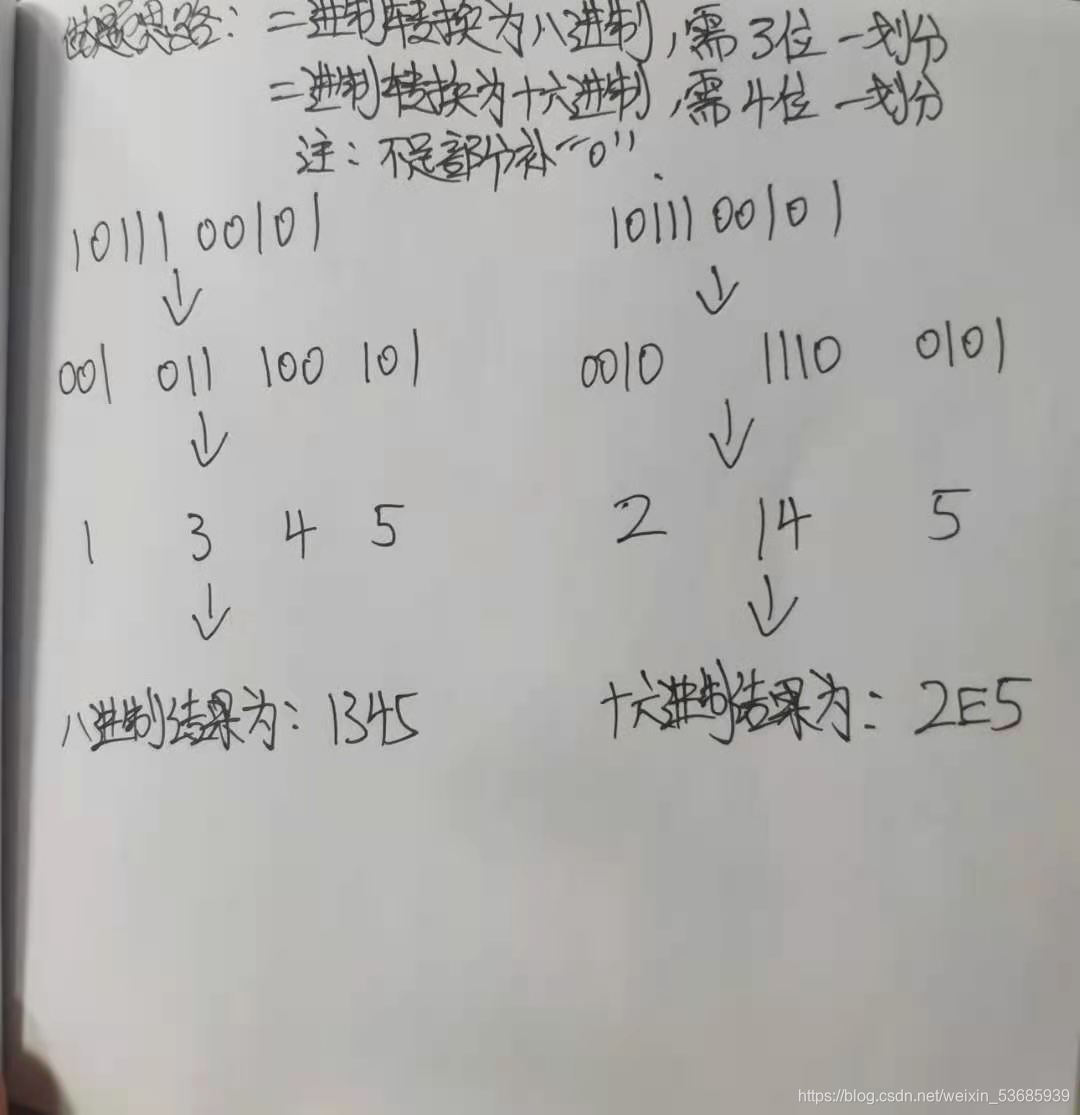 做题思路：二进制转换为八进制，需3位一划分
二进制转换为十六进制，需4位一划分
注：不足部分补“0”
1011100101
1011100101
001 011 100 101
0010 1110 0101
1 3 4 5
2 14 5
八进制结果为：1345
十六进制结果为：2E5
https://blog.csdn.net/weixin_53685939